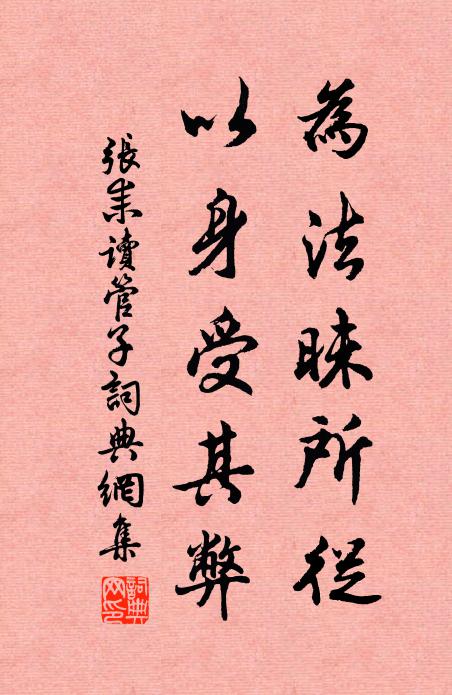 為法昧所從
以身受其弊
張耒讀管子詞典網集
詞典網印